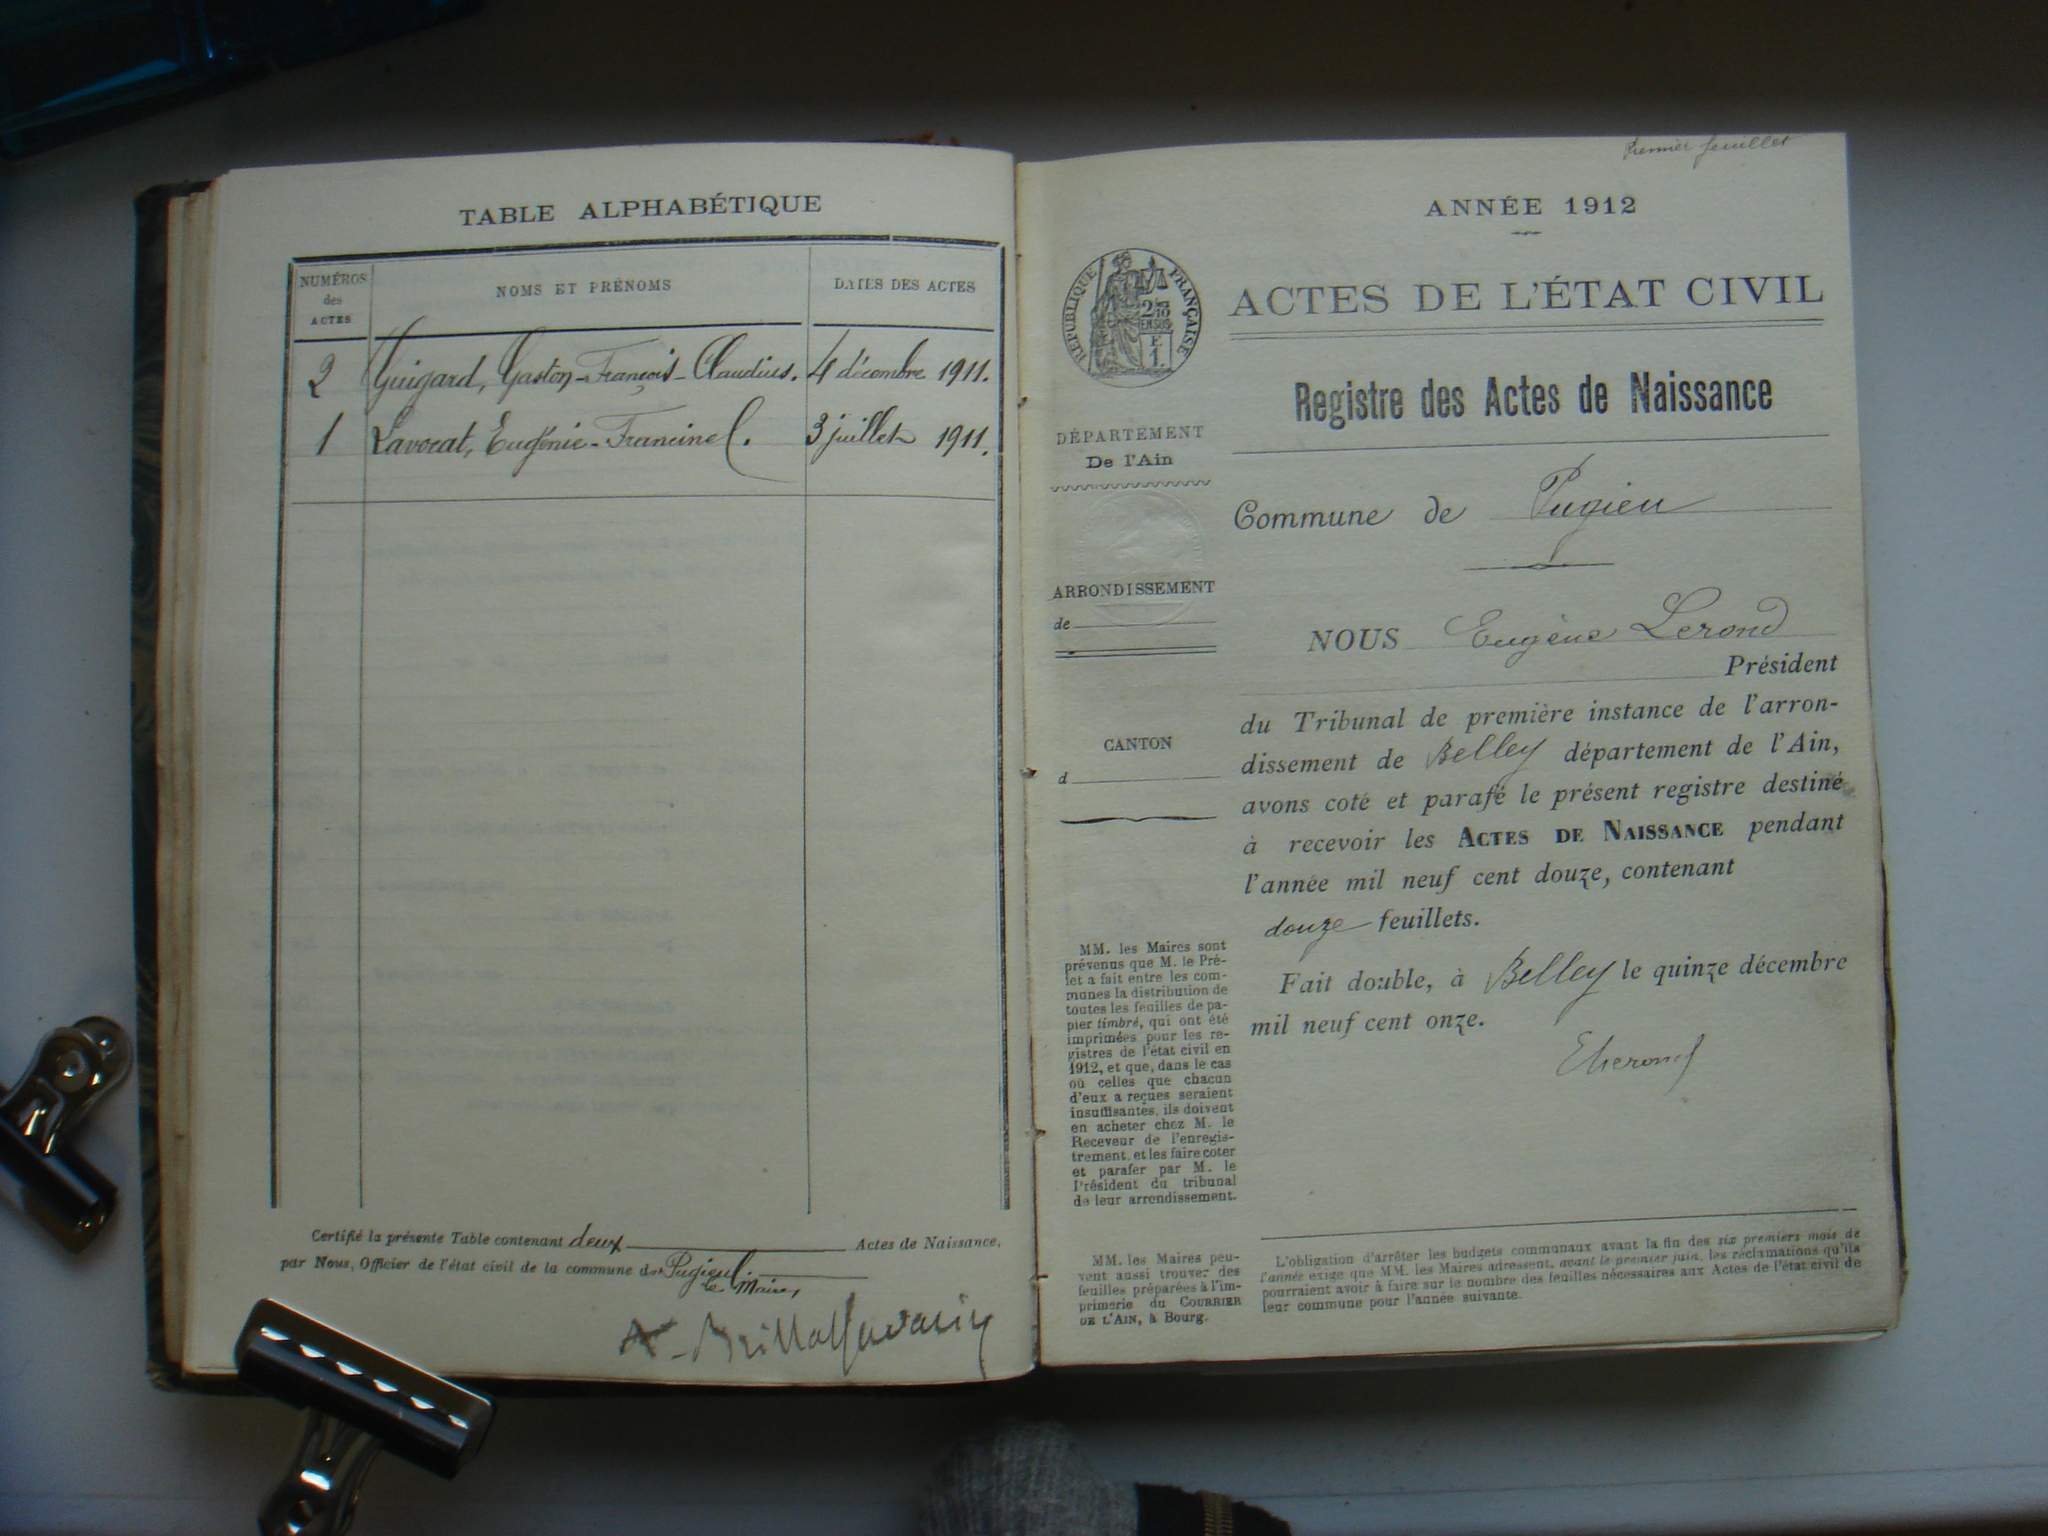 TABLE ALPHABÉTIQUE
NUMÉROS
des
ACTES
NOMS ET PRÉNOMS
DATES DES ACTES
2 Guigard, Gaston-François-Claudius. 4 décembre 1911.
1 Lavocat, Eugénie-Francine. 3 juillet 1911.
Certifié la présente Table contenant deux Actes de Naissance,
par Nous, Officier de l'état civil de la commune de Pugieu
le Maire,
Premier feuillet
ANNÉE 1912
RÉPUBLIQUE FRANÇAISE
ACTES DE L'ÉTAT CIVIL
Registre des Actes de Naissance
DÉPARTEMENT
De l'Ain
Commune de Pugieu
ARRONDISSEMENT
de
CANTON
d
NOUS Eugène Lerond
Président
du Tribunal de première instance de l'arron-
dissement de Belley département de l'Ain,
avons coté et parafé le présent registre destiné
à recevoir les ACTES DE NAISSANCE pendant
l'année mil neuf cent douze, contenant
douze feuillets.
Fait double, à Belley le quinze décembre
mil neuf cent onze.
ELerond
MM. les Maires sont
prévenus que M. le Pré-
fet a fait entre les com-
munes la distribution de
toutes les feuilles de pa-
pier timbré, qui ont été
imprimées pour les re-
gistres de l'état civil en
1912, et que, dans le cas
où celles que chacun
d'eux a reçues seraient
insuffisantes, ils doivent
en acheter chez M. le
Receveur de l'enregis-
trement, et les faire coter
et parafer par M. le
Président du tribunal
de leur arrondissement.
MM. les Maires peu-
vent aussi trouver des
feuilles préparées à l'im-
primerie du COURRIER
DE L'AIN, à Bourg.
L'obligation d'arrêter les budgets communaux avant la fin des six premiers mois de
l'année exige que MM. les Maires adressent, avant le premier juin, les réclamations qu'ils
pourraient avoir à faire sur le nombre des feuilles nécessaires aux Actes de l'état civil de
leur commune pour l'année suivante.